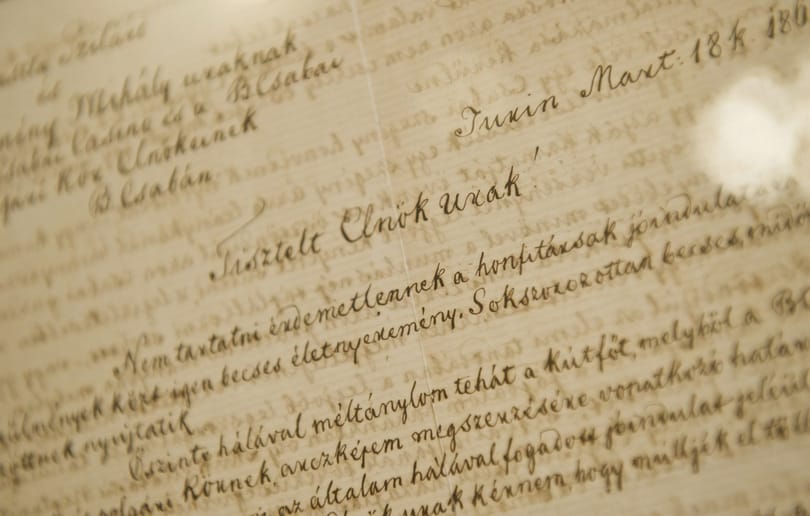 és
Mihály uraknak
Csabai Casino és a BCsabai
Kör Elnökeinek
BCsabán
Turin Mart. 18k 186
Tisztelt Elnök urak!
Nem tartatni érdemetlennek a honfitársak jóindulatára
között igen becses életnyeremény. Sokszorozottan becses, midőn
nyújtatik
Őszinte hálával méltánylom tehát a kútfőt, melyből a
Körnek, arczképem megszerzésére vonatkozó
az általam hálával fogadott jóindulat
urak kérnem hogy